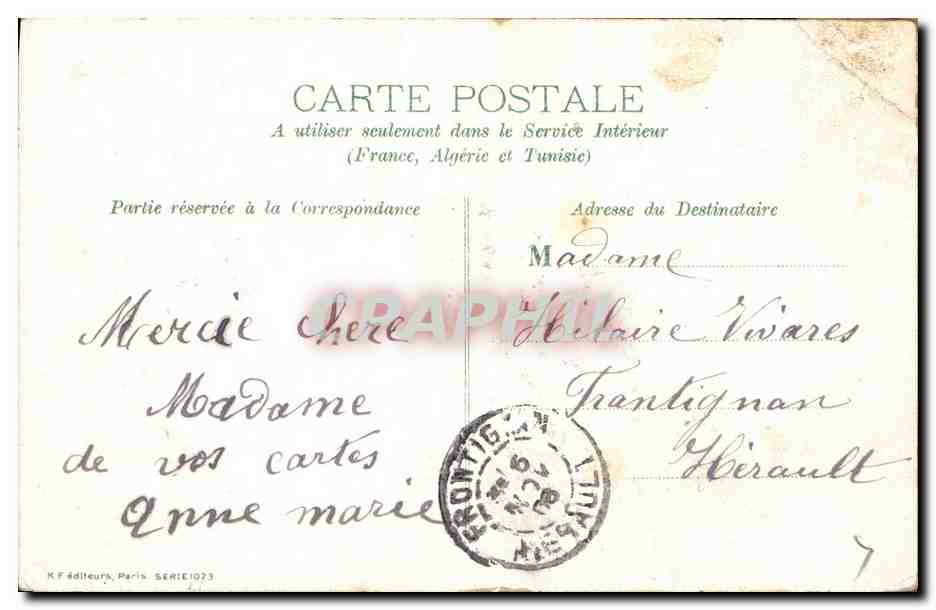 CARTE POSTALE
A utiliser seulement dans le Service Intérieur
(France, Algérie et Tunisie)
Partie réservée à la Correspondance
Mercie chere
Madame
de vos cartes
Anne marie
Adresse du Destinataire
Madame
Hilaire Vivares
Frantignan
Hérault
FRONTIGNAN
6
NOV
08
HÉRAULT
K.F éditeurs, Paris. SERIE 1023
CPAPHIL